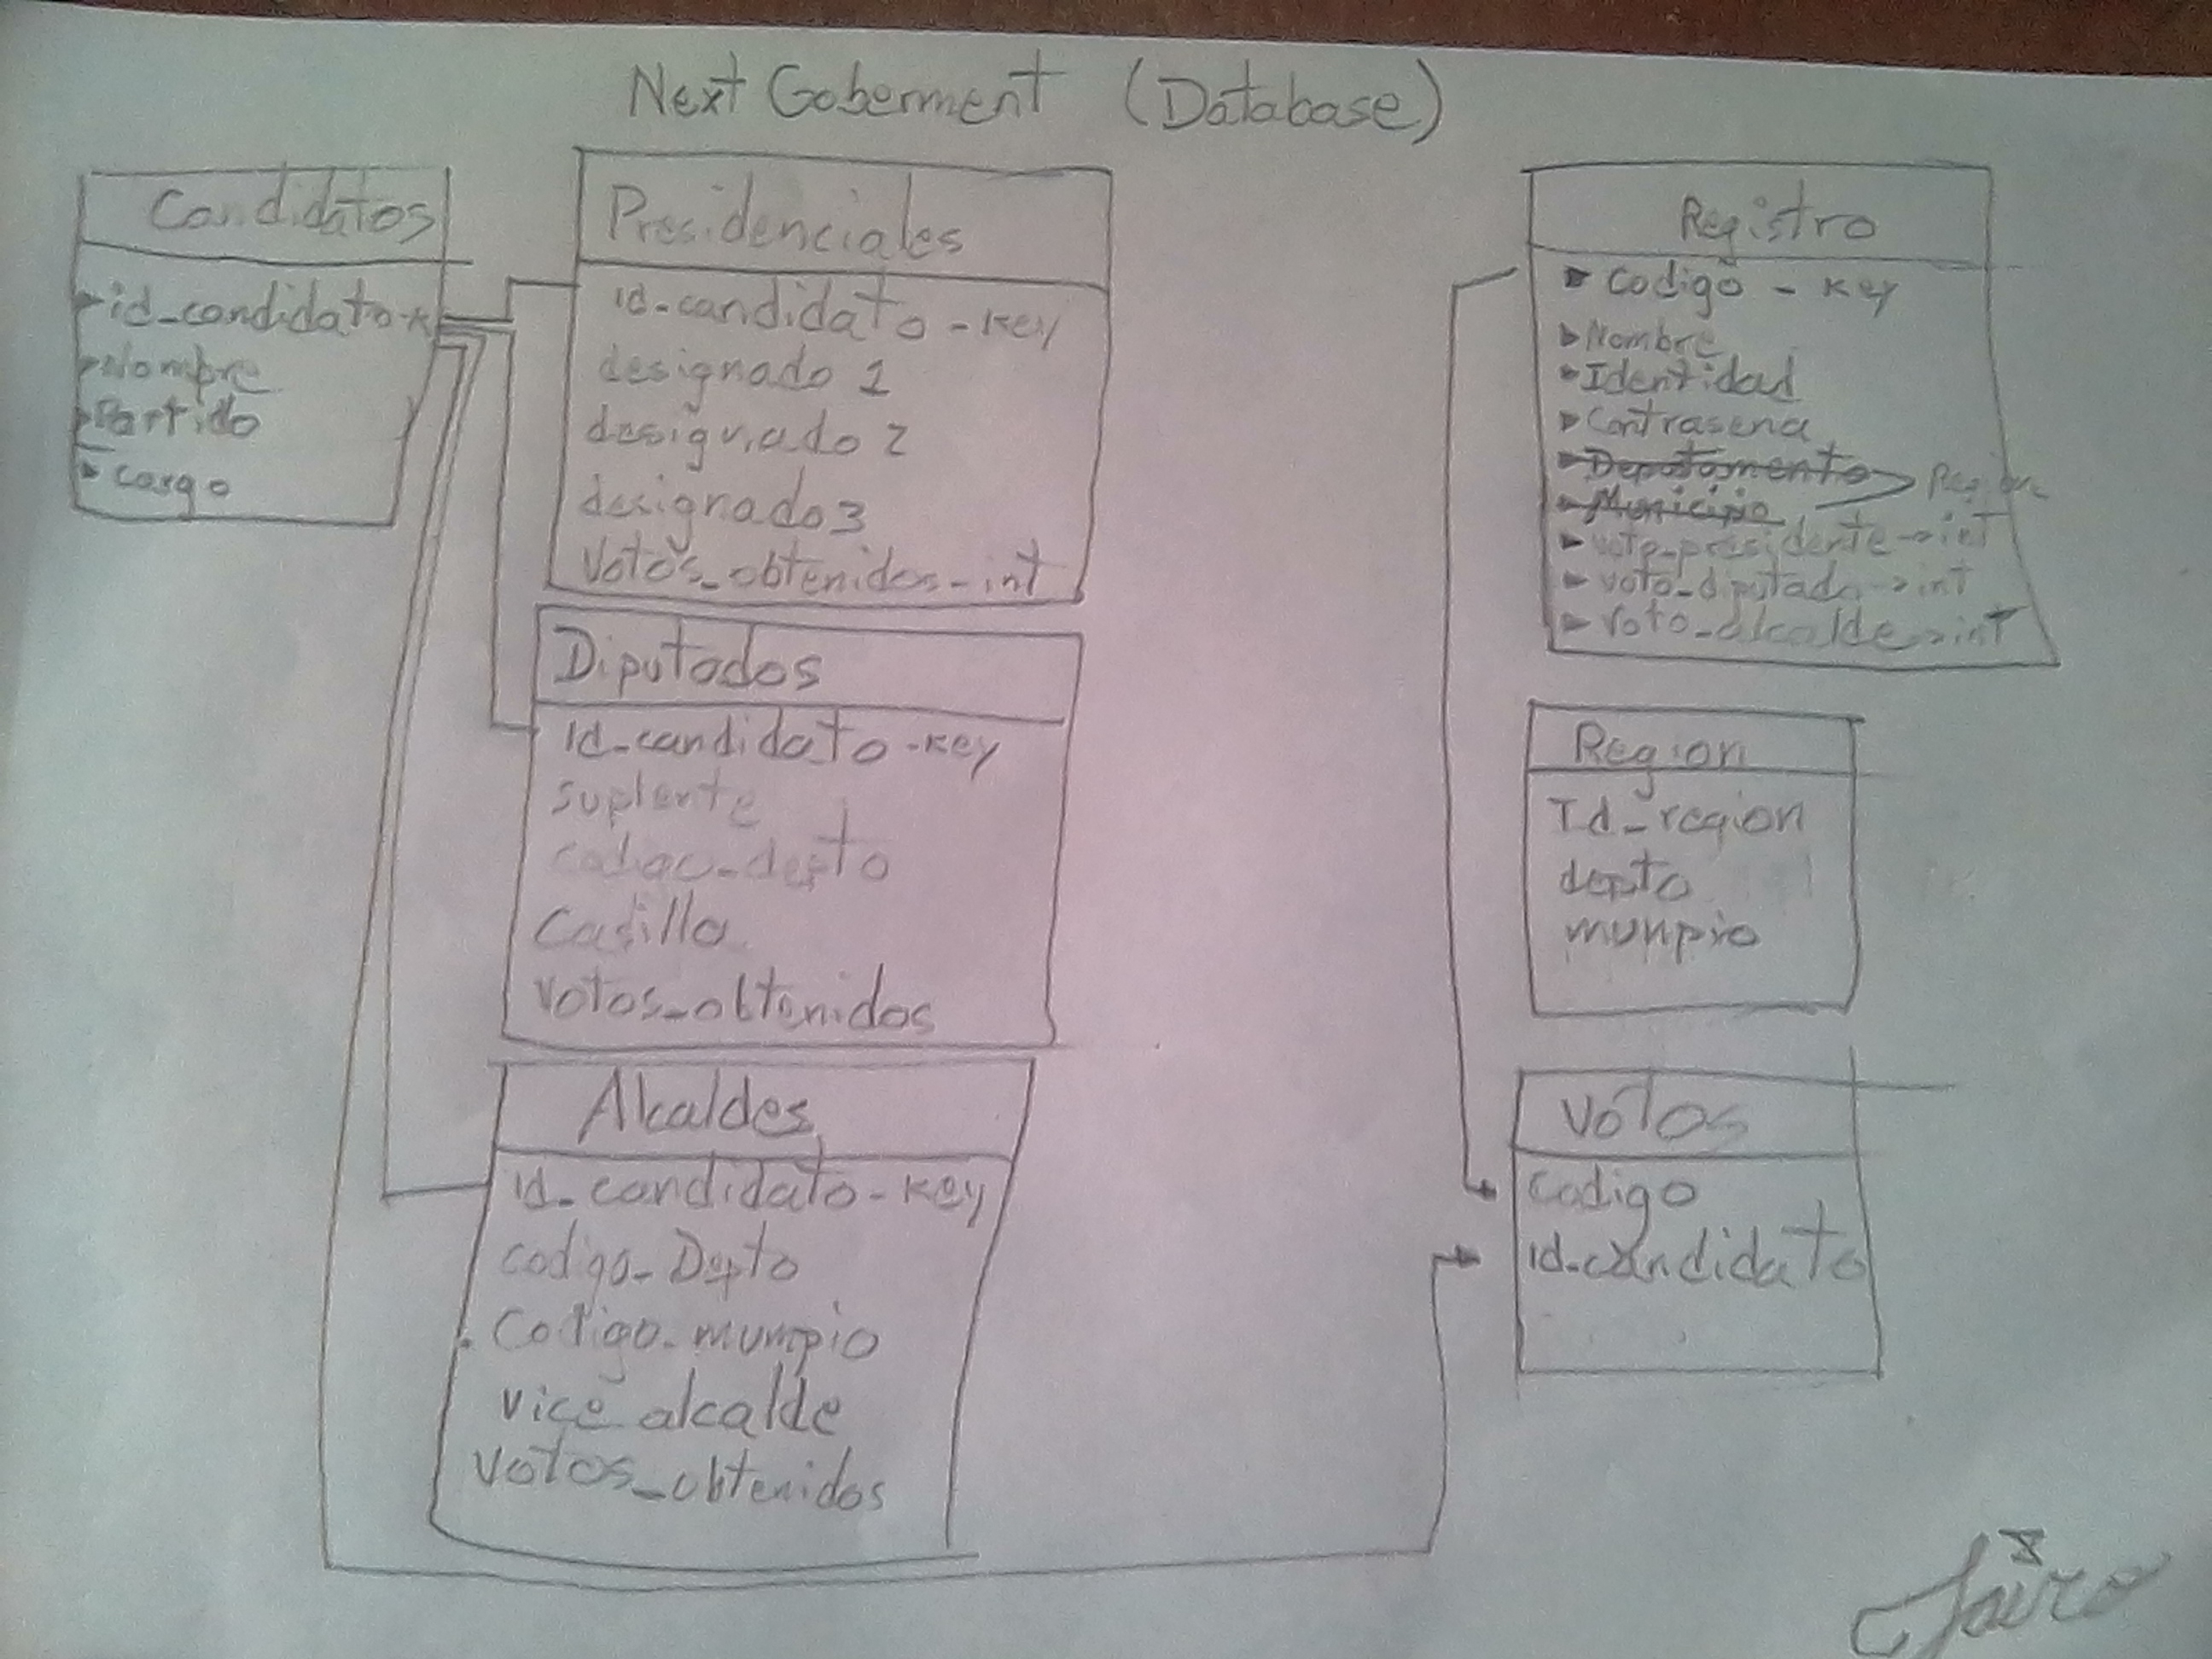 Next Goberment (Database)
Candidatos
id_candidato-K
Nombre
Partido
cargo
Presidenciales
id-candidato-key
designado 1
designado 2
designado 3
Votos_obtenidos-int
Diputados
Id-candidato-key
suplente
codigo-depto
Casilla
Votos_obtenidos
Alcaldes
id_candidato-key
codigo_Depto
Codigo-munpio
vice alcalde
Votos_obtenidos
Registro
Codigo - Key
Nombre
Identidad
Contrasena
Depatamento
Municipio
voto_presidente->int
voto_diputado->int
Voto_alcalde->int
Region
Id_region
depto
munpio
Votos
codigo
id-candidato
Jairo